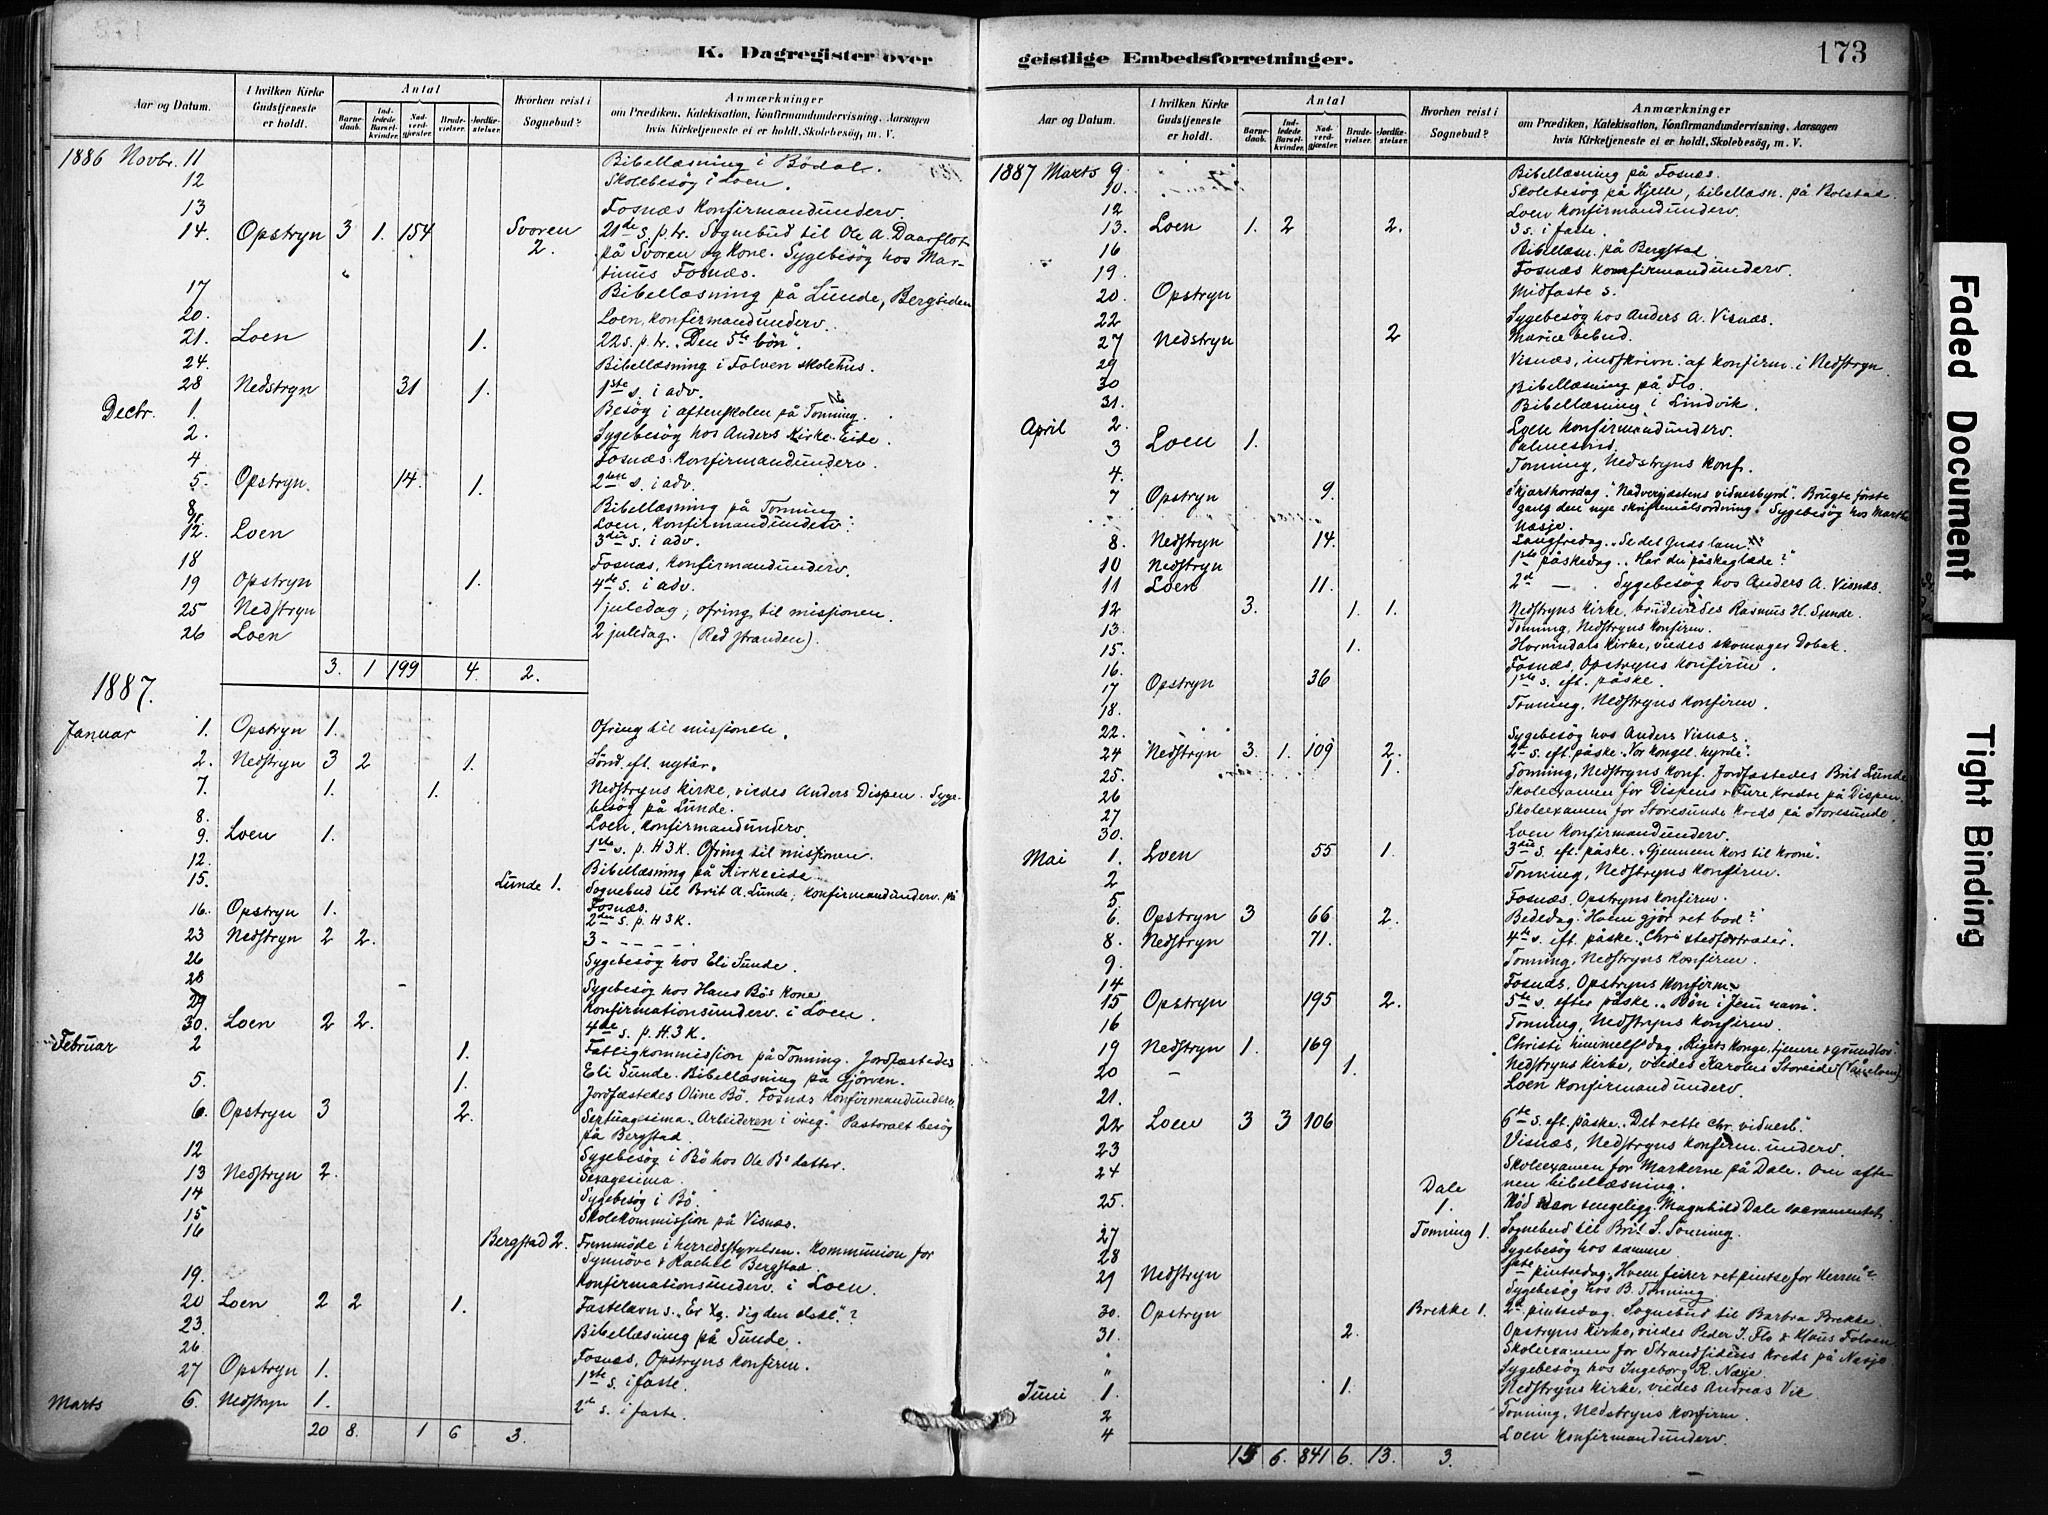 K. Dagregister over
Aar og Datum.
I hvilken Kirke Gudstjeneste er holdt.
Antal
Barnedaab.
Indledede Barselkvinder.
Nadverdgjæster.
Brudevielser.
Jordfæstelser.
Hvorhen reist i Sognebud?
Anmærkninger
om Prædiken, Katekisation, Konfirmandundervisning, Aarsagen
hvis Kirketjeneste ei er holdt, Skolebesøg, m. V.
1886 Novbr. 11 Bibellæsning i Bödal.
12 Skolebesøg i Loen.
13 Fosnæs Konfirmandunderv.
14. Opstryn 3 1. 154 Svoren 2. 21de s. p. tr. Sognebud til Ole A. Daarflot
på Svoren og Kone. Sygebesög hos Mar-
tinus Fosnæs.
17 Bibellæsning på Lunde, Bergsiden
20. Loen, konfirmandunderv.
21. Loen 1. 22 s. p. tr. "Den 5te bön".
24. Bibellæsning i Folven skolehus.
28 Nedstryn 31 1. 1ste s. i adv.
Decbr. 1. Besög i aftenskolen på Tonning.
2. Sygebesög hos Anders Kirke-Eide.
4 Fosnæs Konfirmandunderv.
5. Opstryn. 14. 1. 2den s. i adv.
8. Bibellæsning på Tonning
Loen, Konfirmandunderv.
12. Loen 3die s. i adv.
18 Fosnæs, Konfirmandunderv.
19 Opstryn 1. 4de s. i adv.
25 Nedstryn 1 juledag; ofring til missjonen.
26 Loen 2 juledag. (Red stranden).
3. 1 199 4. 2.
1887.
Januar 1. Opstryn 1. Ofring til missjonen.
2. Nedstryn 3 2 1. Sönd. eft. nytår.
7. 1. 1. Nedstryns Kirke, viedes Anders Dispen. Syge-
besög på Lunde.
8. Loen, Konfirmandunderv.
9. Loen 1. 1ste s. p. H3K. Ofring til missjonen.
12. Bibellæsning på Kirkeeide
15. Lunde 1. Sognebud til Brit A. Lunde; Konfirmandunderv. på
Fosnæs.
16. Opstryn 1. 2den s. p. H3K.
23 Nedstryn 2 2. 3 - - - - -
26 Sygebesög hos Eli Sunde.
28 Sygebesög hos Hans Bös Kone
29 Konfirmationsunderv. i Loen.
30. Loen 2 2. 4de s. p. H3K.
Februar 2 1. Fattigkommission på Tonning. Jordfæstedes
Eli Sunde. Bibellæsning på Gjörven.
5. 1. Jordfæstedes Oline Bö. Fosnæs Konfirmandunderv.
6. Opstryn 3 2. Septuagesima. "Arbeideren i ving." Pastoralt besög
på Bergstad.
12 Sygebesög i Bö hos Ole Bös datter.
13 Nedstryn 2. Sexagesima.
14 Sygebesög i Bö.
15 Skolekommission på Visnæs.
16 Bergstad 2. Fremmöde i herredsstyrelsen. Kommunion for
Synnöve & Rachel Bergstad.
19. Konfirmationsunderv. i Loen.
20 Loen 2 2 1. Fastelavn s.
23. Bibellæsning på Sunde.
26. Fosnæs, Opstryns konfirm.
27 Opstryn 1. 1ste s. i faste.
Marts 6. Nedstryn 1. 2de s. i faste.
20 8. 1 6 3.
geistlige Embedsforretninger.
173
Aar og Datum.
I hvilken Kirke Gudstjeneste er holdt.
Antal
Barnedaab.
Indledede Barselkvinder.
Nadverdgjæster.
Brudevielser.
Jordfæstelser.
Hvorhen reist i Sognebud?
Anmærkninger
om Prædiken, Katekisation, Konfirmandundervisning, Aarsagen
hvis Kirketjeneste ei er holdt, Skolebesøg, m. V.
1887 Marts 9 Bibellæsning på Fosnæs.
10. Skolebesög på Hjelle, bibellæsn. på Bolstad.
12 Loen Konfirmandunderv.
13. Loen 1. 2 2. 3 s. i faste.
16 Bibellæsn. på Bergstad.
19. Fosnæs Konfirmandunderv.
20. Opstryn Midfaste s.
22 Sygebesög hos Anders A. Visnæs.
27 Nedstryn 2 Mariæ bebud.
29 Visnæs, indskrivn. af konfirm. i Nedstryn.
30 Bibellæsning på Flo.
31. Bibellæsning i Lindvik.
April 2. Loen Konfirmandunderv.
3 Loen 1. Palmesönd.
4. Tonning, Nedstryns Konf.
7 Opstryn 9. Skjærthorsdag. "Nadverjæstens vidnesbyrd". Brugte förste
gang den nye skriftemålsordning. Sygebesög hos Marthe
Nasje.
8. Nedstryn 14. Langfredag. "Se det Guds lam."
10 Nedstryn 1ste påskedag. "Har du påskeglæde?"
11 Loen 11. 2de — Sygebesög hos Anders A. Visnæs.
12 3. 1. 1. Nedstryns Kirke, brudevi[e]des Rasmus H. Sunde.
13. Tonning, Nedstryns Konfirm.
15. 1. Hornindals Kirke, viedes skomager Dobak.
16. Fosnæs, Opstryns Konfirm.
17 Opstryn 36 1ste s. eft. påske.
18. Tonning, Nedstryns Konfirm.
22. Sygebesög hos Anders Visnæs.
24 Nedstryn 3. 1. 109 2. 2de s. eft. påske. "Vor kongel. hyrde".
25. 1. Tonning, Nedstryns Konf. Jordfæstedes Brit Lunde
26 Skoleexamen for Dispens & Ture Kredse på Dispen.
27 Skoleexamen for Storesunde Kreds på Storesunde.
30. Loen Konfirmandunderv.
Mai 1. Loen 55 1. 3die s. eft. påske. "Gjennem kors til krone".
2 Tonning, Nedstryns Konfirm.
5 Fosnæs, Opstryns Konfirm.
6. Opstryn 3 66 2. Bededag. "Hvem gjör ret bod?"
8. Nedstryn 71. 4de s. eft. påske. "Chri stedfortræder".
9. Tonning, Nedstryns Konfirm.
14 Fosnæs, Opstryns Konfirm.
15 Opstryn 195 2. 5te s. efter påske. "Bön i Jesu navn".
16 Tonning, Nedstryns Konfirm.
19 Nedstryn 1. 169 Christi himmelf'sdag. "Rigets Konge, tjenere & grundlov".
20 – 1. Nedstryns Kirke, viedes Karolus Storeide
21. Loen Konfirmandunderv.
22 Loen 3 3 106 6te s. eft. påske. "Det rette Chr. vidnesb."
23 Visnæs, Nedstryns Konfirm. underv.
24 Skoleexamen for Markerne på Dale. Om afte-
nen bibellæsning.
25. Dale 1. Nöd sengeligg. Magnhild Dale sacramentet.
27 Tonning 1. Sognebud til Brit S. Tonning.
28 Sygebesög hos samme
29 Nedstryn 1ste pintsedag. "Hvem feirer ret pintse for Herren"?
Sygebesög hos B. Tonning
30. Opstryn Brekke 1. 2de pintsedag. Sognebud til Barbra Brekke.
31. 2. Opstryns Kirke, viedes Peder J. Flo & Klaus Folven
" Skoleexamen for Strandsidens Kreds på Nasje
" Sygebesög hos Ingeborg R. Nasje.
Juni 1. 1. Nedstryns Kirke, viedes Andreas Vik
2 Tonning, Nedstryns Konfirm.
4 Loen Konfirmandunderv.
15 6. 841 6. 13. 3.
Faded Document
Tight Binding